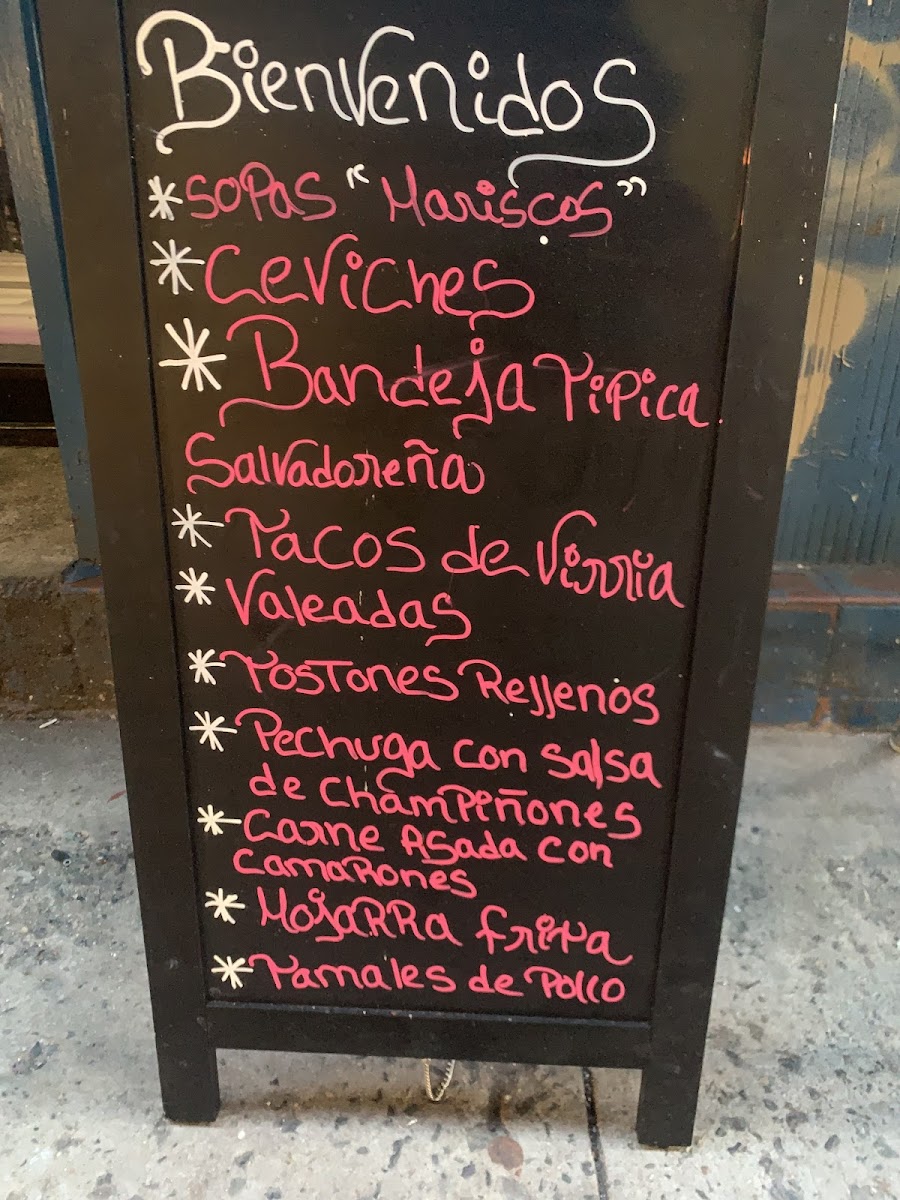 Bienvenidos
* Sopas "Mariscos"
* Ceviches
* Bandeja Tipica
Salvadoreña
* Tacos de Virria
* Valeadas
* Tostones Rellenos
* Pechuga con salsa
de Champiñones
* Carne Asada con
Camarones
* Mojarra frita
* Tamales de Pollo